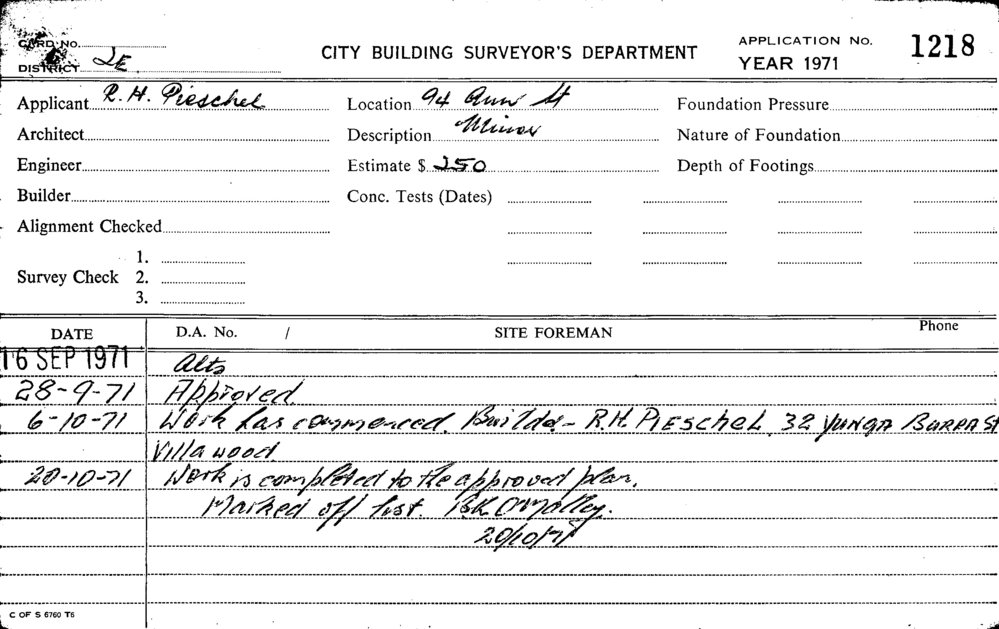 CARD No.
DISTRICT 2E
CITY BUILDING SURVEYOR'S DEPARTMENT
APPLICATION No. 1218
YEAR 1971
Applicant R. H. Pieschel
Location 94 Ann St
Foundation Pressure
Architect
Description Minor
Nature of Foundation
Engineer
Estimate $ 250
Depth of Footings
Builder
Conc. Tests (Dates)
Alignment Checked
Survey Check
1.
2.
3.
DATE
D.A. No. /
SITE FOREMAN
Phone
16 SEP 1971 Alts
28-9-71 Approved
6-10-71 Work has commenced. Builder- R.H. PIESCHEL, 32 YUNGA BURRA St
Villawood
20-10-71 Work is completed to the approved plan.
Marked off list. B.K. O'Malley.
20/10/71
C OF S 6760 T6